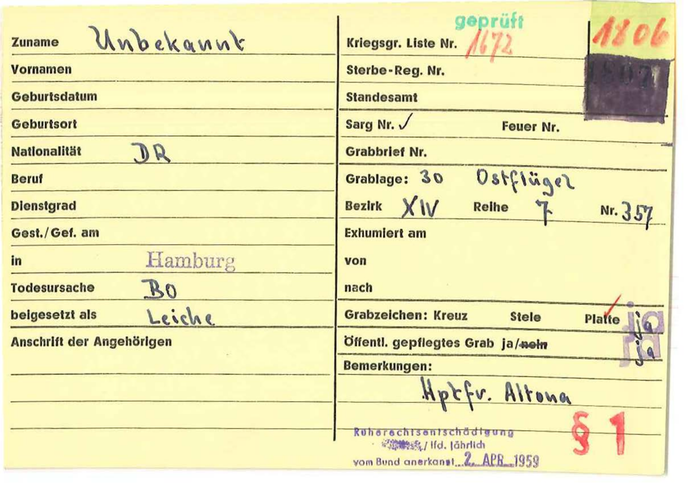 geprüft
1806
Zuname Unbekannt
Vornamen
Geburtsdatum
Geburtsort
Nationalität DR
Beruf
Dienstgrad
Gest./Gef. am
in Hamburg
Todesursache BO
beigesetzt als Leiche
Anschrift der Angehörigen
Kriegsgr. Liste Nr. 1672
Sterbe-Reg. Nr.
Standesamt
Sarg Nr. ✓ Feuer Nr.
Grabbrief Nr.
Grablage: 30 Ostflügel
Bezirk XIV Reihe 7 Nr. 357
Exhumiert am
von
nach
Grabzeichen: Kreuz Stele Platte ja
Öffentl. gepflegtes Grab ja/nein ja
Bemerkungen:
Hptfr. Altona
§ 1
Ruherechtsentschädigung
/ lfd. jährlich
vom Bund anerkannt 2. APR. 1959